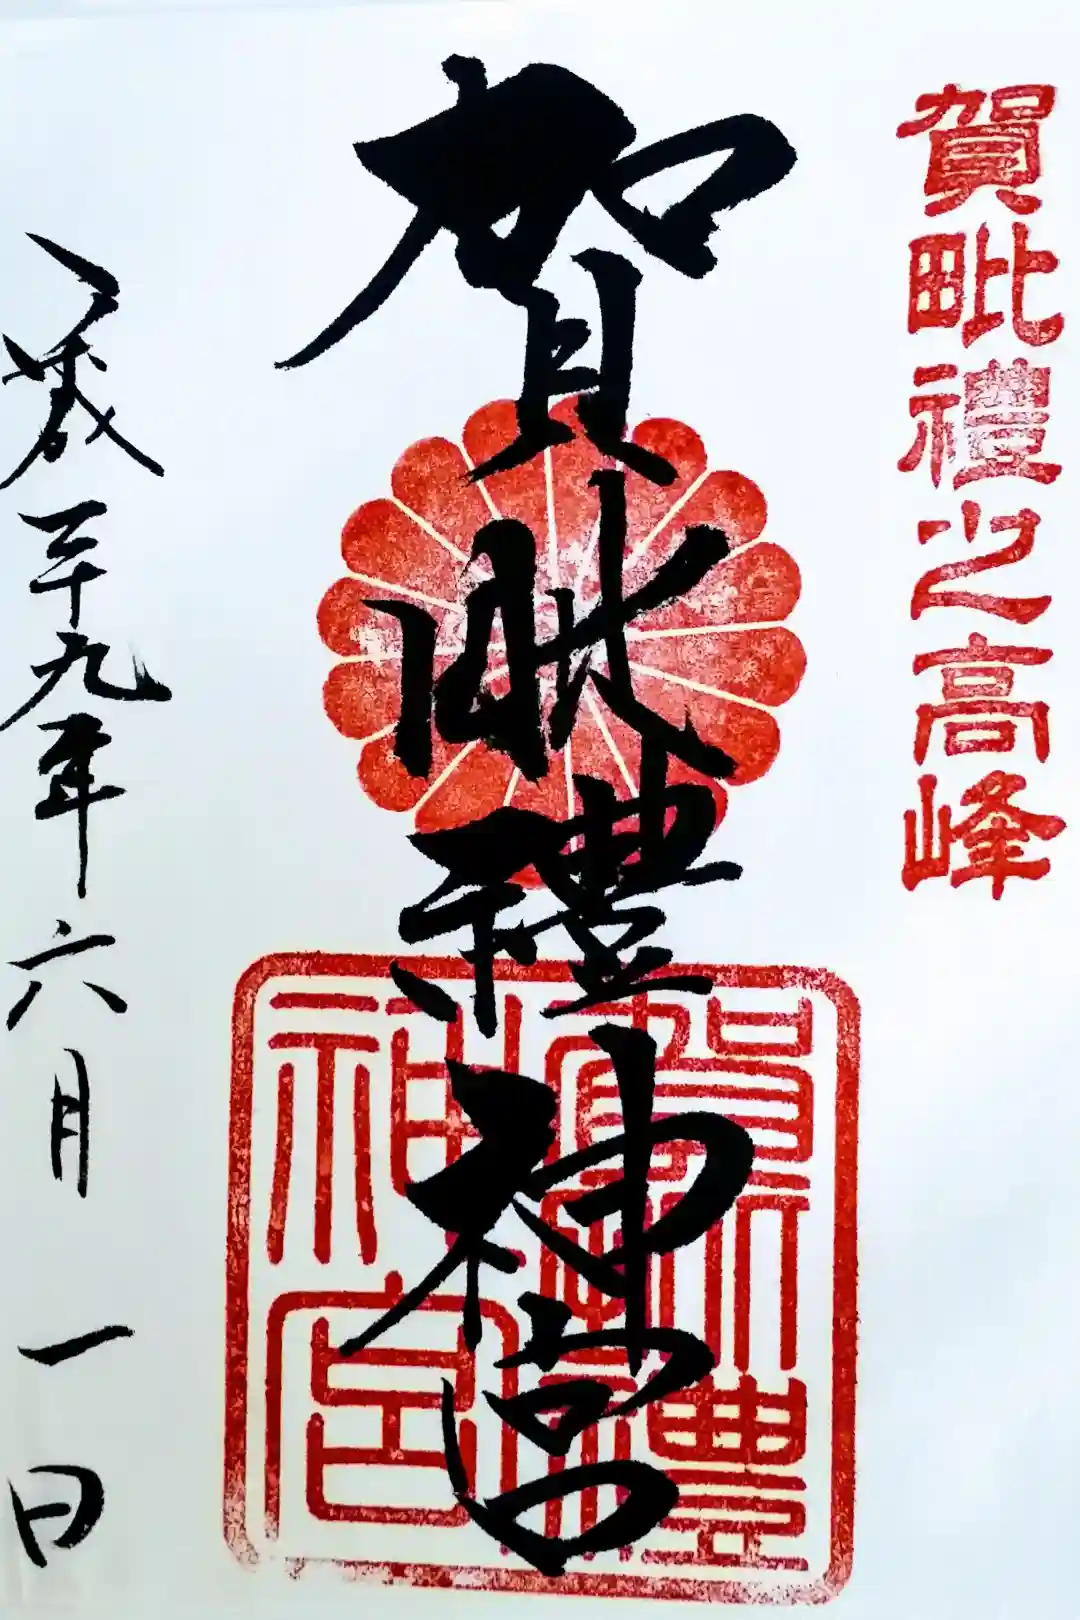 賀毗禮之高峰
賀毗禮神宮
平成二十九年六月一日
神宮